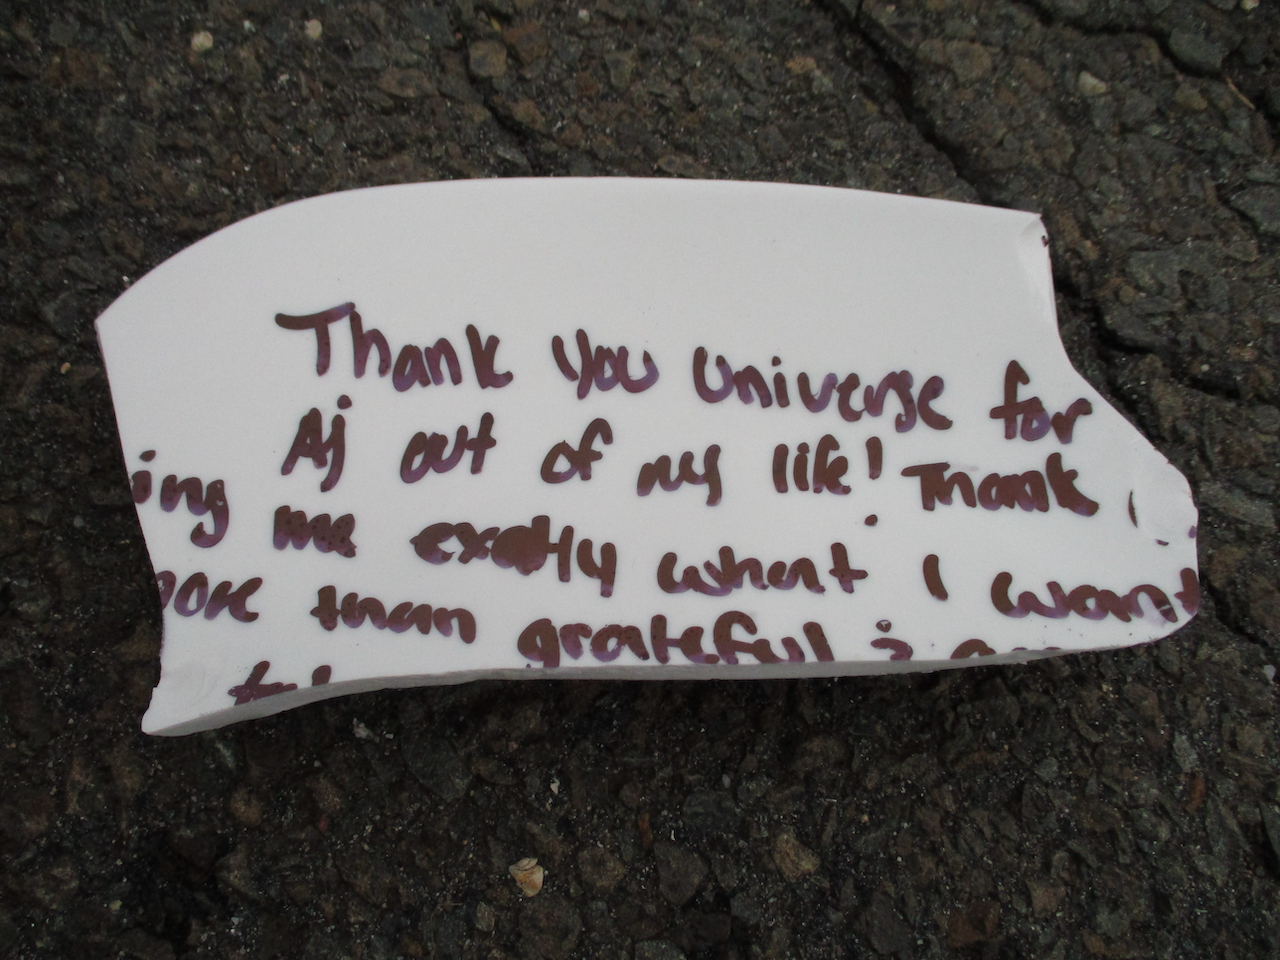 Thank You Universe for
Aj out of my life! Thank
ing me exatly what I want
ore than grateful